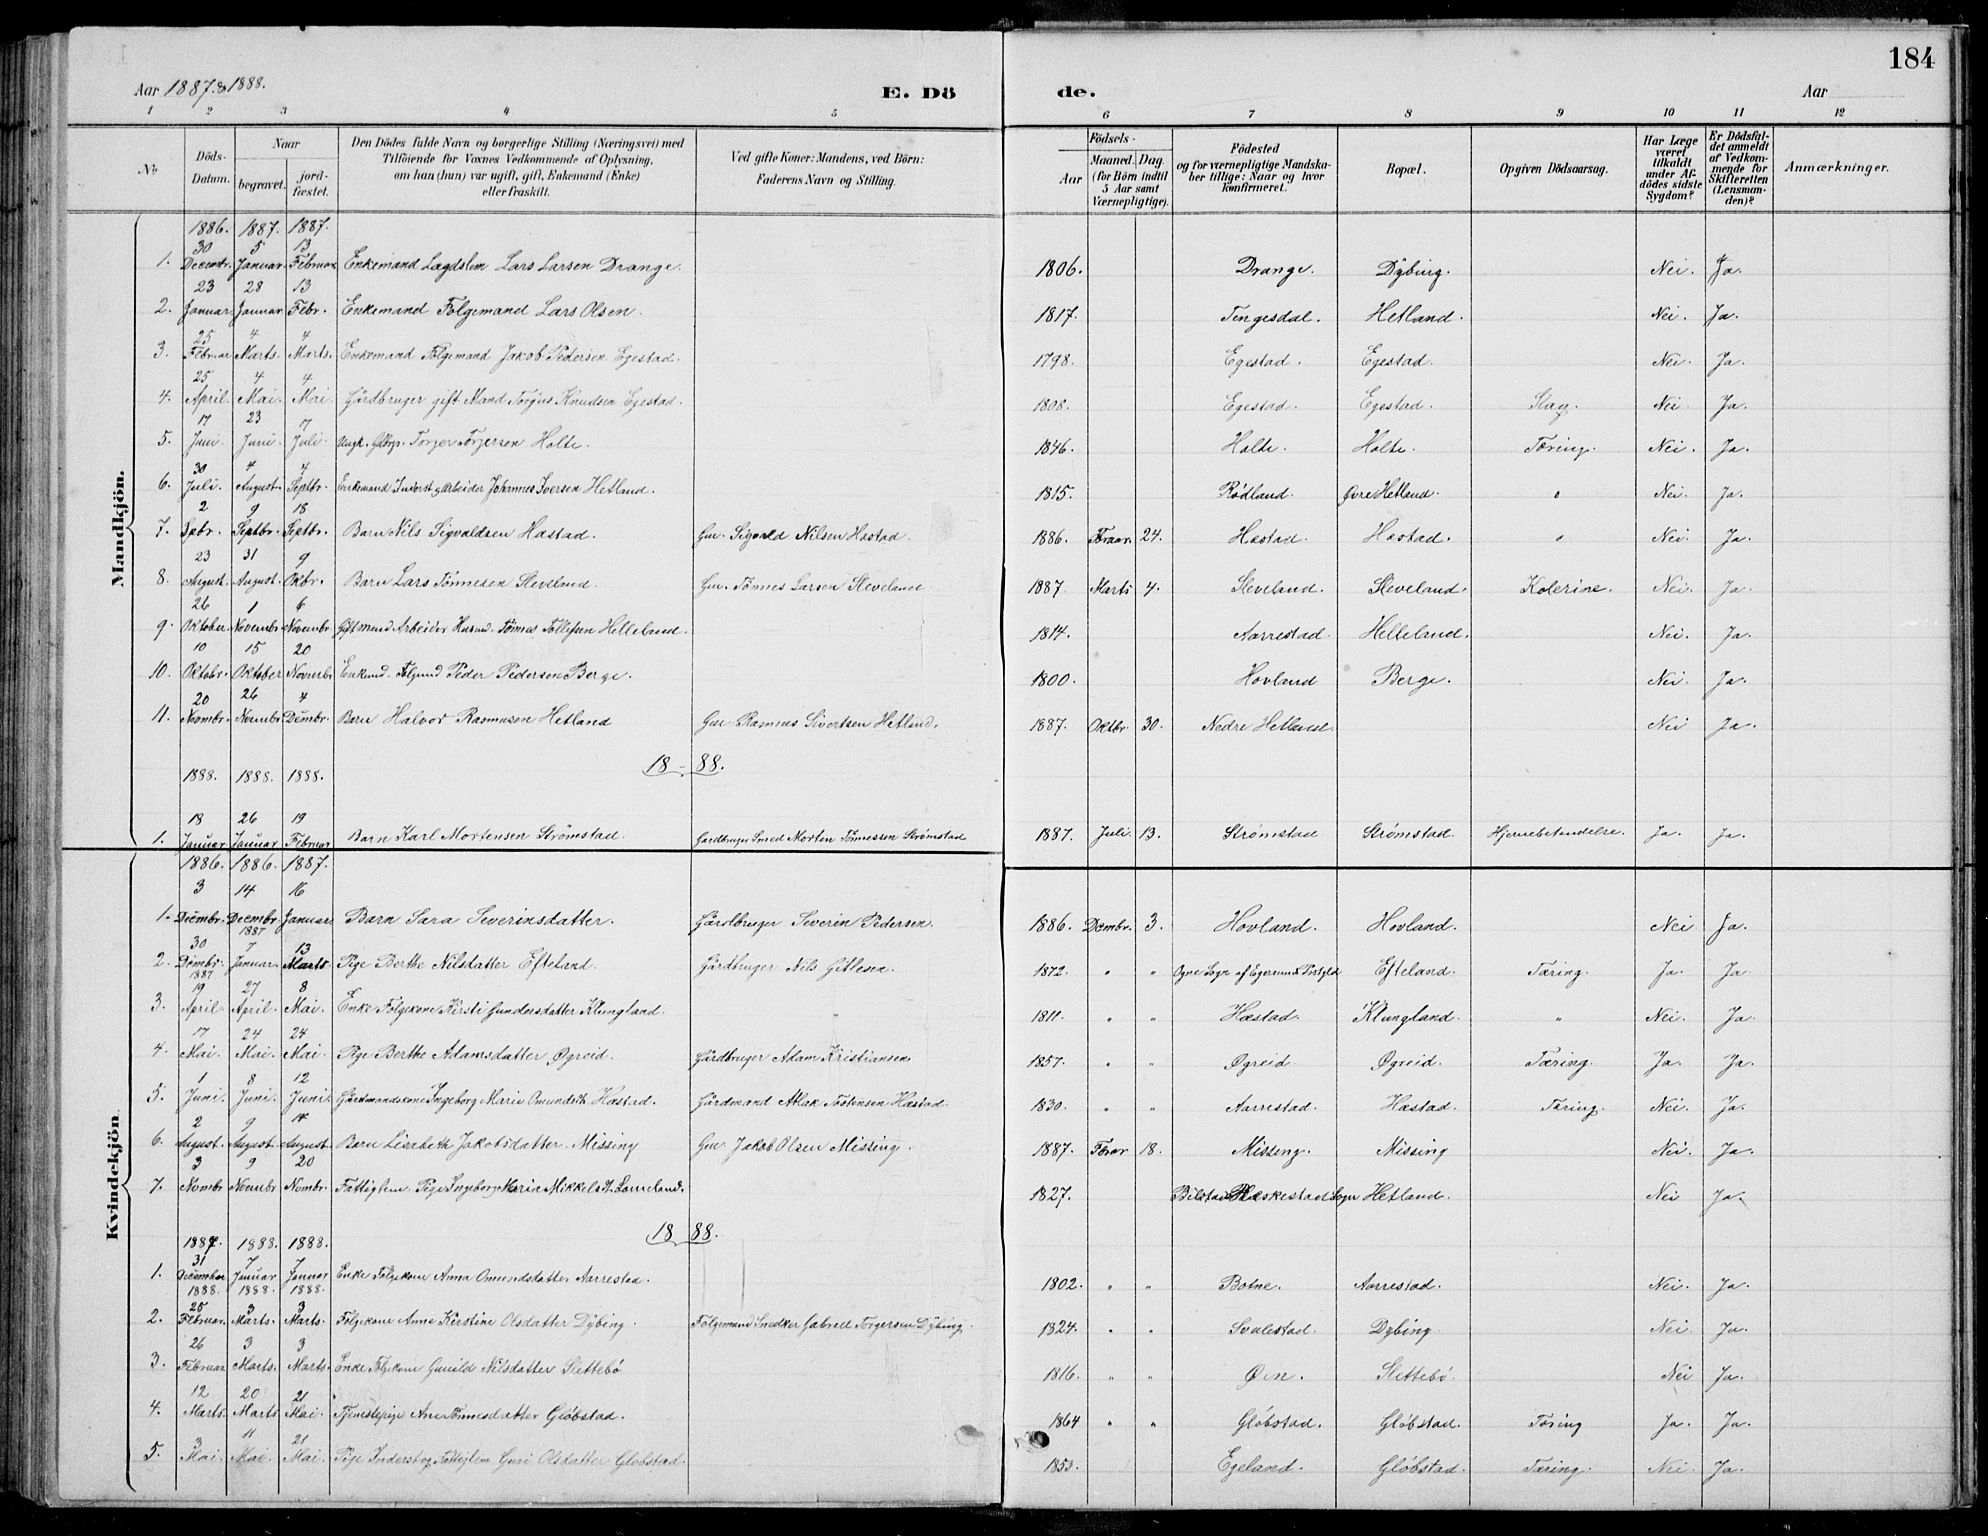 184
Aar 1887 & 1888.
E. Dö de.
Aar
1 2 3 4 5 6 7 8 9 10 11 12
No
Döds-Datum.
Naar
begravet.
jord-fæstet.
Den Dödes fulde Navn og borgerlige Stilling (Næringsvei) med
Tilföiende for Voxnes Vedkommende af Oplysning,
om han (hun) var ugift, gift, Enkemand (Enke)
eller fraskilt.
Ved gifte Koner: Mandens, ved Börn:
Faderens Navn og Stilling.
Födsels-
Aar
Maaned. Dag.
(for Börn indtil
5 Aar samt
Værnepligtige).
Födested
og for værnepligtige Mandska-
ber tillige: Naar og hvor
konfirmeret.
Bopæl.
Opgiven Dödsaarsag.
Har Læge
været
tilkaldt
under Af-
dödes sidste
Sygdom?
Er Dödsfal-
det anmeldt
af Vedkom-
mende for
Skifteretten
(Lensman-
den)?
Anmærkninger.
Mandkjön.
1886. 1887. 1887.
30 5 13
1. Decembr. Januar. Februar. Enkemand Lægdslem Lars Larsen Drange. 1806. Drange. Dybing. Nei. Ja.
23 28 13
2. Januar. Januar Febr. Enkemand Følgemand Lars Olsen. 1817. Tengesdal. Hetland. Nei. Ja.
25 4 4
3. Februar Marts. Marts. Enkemand Følgemand Jakob Pedersen Egestad. 1798. Egestad. Egestad. Nei. Ja.
25 4 4
4. April. Mai. Mai. Gårdbruger gift Mand Torgus Knudsen Egestad. 1808. Egestad. Egestad. Slag. Nei. Ja.
17 23 7
5. Juni. Juni. Juli. Ungk. Gdbrgr. Torger Torjersen Holte. 1846. Holte. Holte. Tæring. Nei. Ja.
30 4 4
6. Juli. August. Septbr. Enkemand Inderst og Arbeider Johannes Iversen Hetland. 1815. Rødland. Øvre Hetland. " Nei. Ja.
2 9 18
7. Spbr. Septbr. Septbr. Barn Nils Sigvaldsen Hæstad. Gm. Sigvald Nilsen Hæstad. 1886. Febuar. 24. Hæstad. Hæstad. " Nei. Ja.
23 31 9
8. August. August. Oktbr. Barn Lars Tönnesen Sleveland. Gm. Tönnes Larsen Sleveland. 1887. Marts 4. Sleveland. Sleveland. Kolerine. Nei. Ja.
26 1 6
9. Oktober. Novembr. Novembr. Gift mand Arbeider Husmd. Tönnes Tollefsen Helleland. 1814. Aarrestad. Helleland. Nei. Ja.
10 15 20
10. Oktobr. Oktober Novmbr. Enkemd. Følgmd Peder Pedersen Berge. 1800. Hovland Berge. Nei. Ja.
20 26 4
11. Novmbr. Novmbr. Dcmbr. Barn Halvor Rasmusen Hetland Gm. Rasmus Sivertsen Hetland. 1887. Oktbr. 30. Nedre Hetland. Nei Ja.
1888. 1888. 1888. 18-88.
18 26 19
1. Januar Januar Februar Barn Karl Mortensen Strömstad. Gardbruger Smed Morten Tönnessen Strömstad 1887. Juli. 13. Strömstad Strömstad. Hjernebetændelse. Ja. Ja.
Kvindekjön
1886. 1886. 1887.
3 14 16
1. Decmbr. Decmbr Januar. Barn Sara Severinsdatter. Gårdbruger Severin Pedersen. 1886. Dcmbr. 3. Hovland. Hovland. Nei Ja.
1887
30 7 13
2. Dcmbr. Januar. Marts. Pige Berthe Nilsdatter Efteland. Gårdbruger Nils Gitlesen. 1872. " " Ogne Sogn af Egersund Prstgld Efteland. Tæring. Ja. Ja.
1887
19 27 8
3. April. April. Mai. Enke Følgekone Kirsti Gundersdatter Klungland. " 1811. " " Hæstad. Klungland. " Nei. Ja.
17 24 24
4. Mai. Mai. Mai. Pige Berthe Adamsdatter Øgreid. Gårdbruger Adam Kristiansen 1857. " " Øgreid Øgreid. Tæring. Ja. Ja.
1 8 12
5. Juni. Juni. Juni. Gårdmandskone Ingeborg Marie Omundsdt. Hæstad. Gårdmand Aslak Tostensen Hæstad. 1830. " " Aarrestad. Hæstad. Tæring. Nei. Ja.
2 9 14
6. August. August. August. Barn Lisabeth Jakobsdatter Missing Gm. Jakob Olsen Missing. 1887. Febrar 18. Missing. Missing Nei. Ja.
3 9 20
7. Nombr. Novmbr Nombr. Fattiglem Pige Ingeborg Maria Mikkelsdt. Lomeland. 1827. Bilstad Bakkestad Sogn Hetland. Nei Ja.
18 88.
1887. 1888. 1888.
31 7 7
1. December Januar Januar Enke Følgekone Anna Omundsdatter Aarrestad. 1802. " " Botne. Aarrestad. Nei. Ja.
1888. 1888. 1888.
25 3 3
2. Februar. Marts. Marts. Følgekone Anne Kirstine Olsdatter Dybing. Følgemand Snedker Gabriel Torgersen Dybing. 1824. " " Svalestad. Dybing. Nei. Ja.
26 3 3
3. Februar. Marts. Marts. Enke Følgekone Gunild Nilsdatter Slettebö 1816. " " Øen. Slettebö. Nei Ja.
12 20 21
4. Marts. Marts Mai. Tjenestepige Ane Tönnesdatter Glöbstad. 1864 " " Glöbstad. Glöbstad. Tæring Ja. Ja.
3 11 21
5. Mai. Mai. Mai. Pige Inderst og Fattiglem Guri Olsdatter Glöbstad. 1853. Egeland. Glöbstad. Tæring. Nei. Ja.